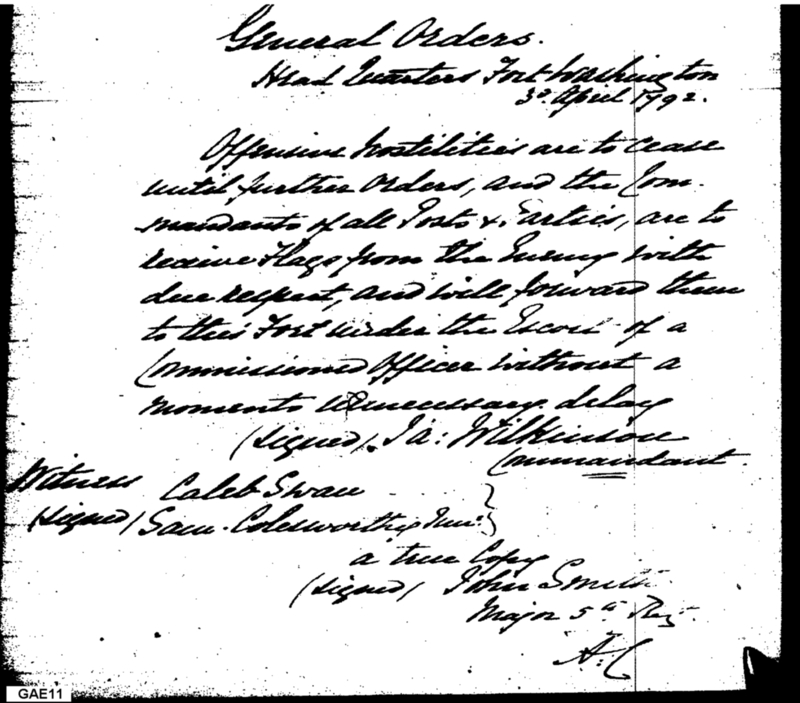 General Orders.
Head Quarters Fort Washington
3d April 1792.
Offensive hostilities are to cease
until further Orders, and the Com-
mandants of all Posts & Parties, are to
receive Flags from the Enemy with
due respect, and will forward them
to this Fort under the Escort of a
Commissioned Officer without a
moments unnecessary delay
(signed) Ja: Wilkinson
Commandant
Witness Caleb Swan
(signed) Sam. Colesworthy Junr.
a true Copy
(signed) John Smith
Major 5th Reg.
A.C
GAE11